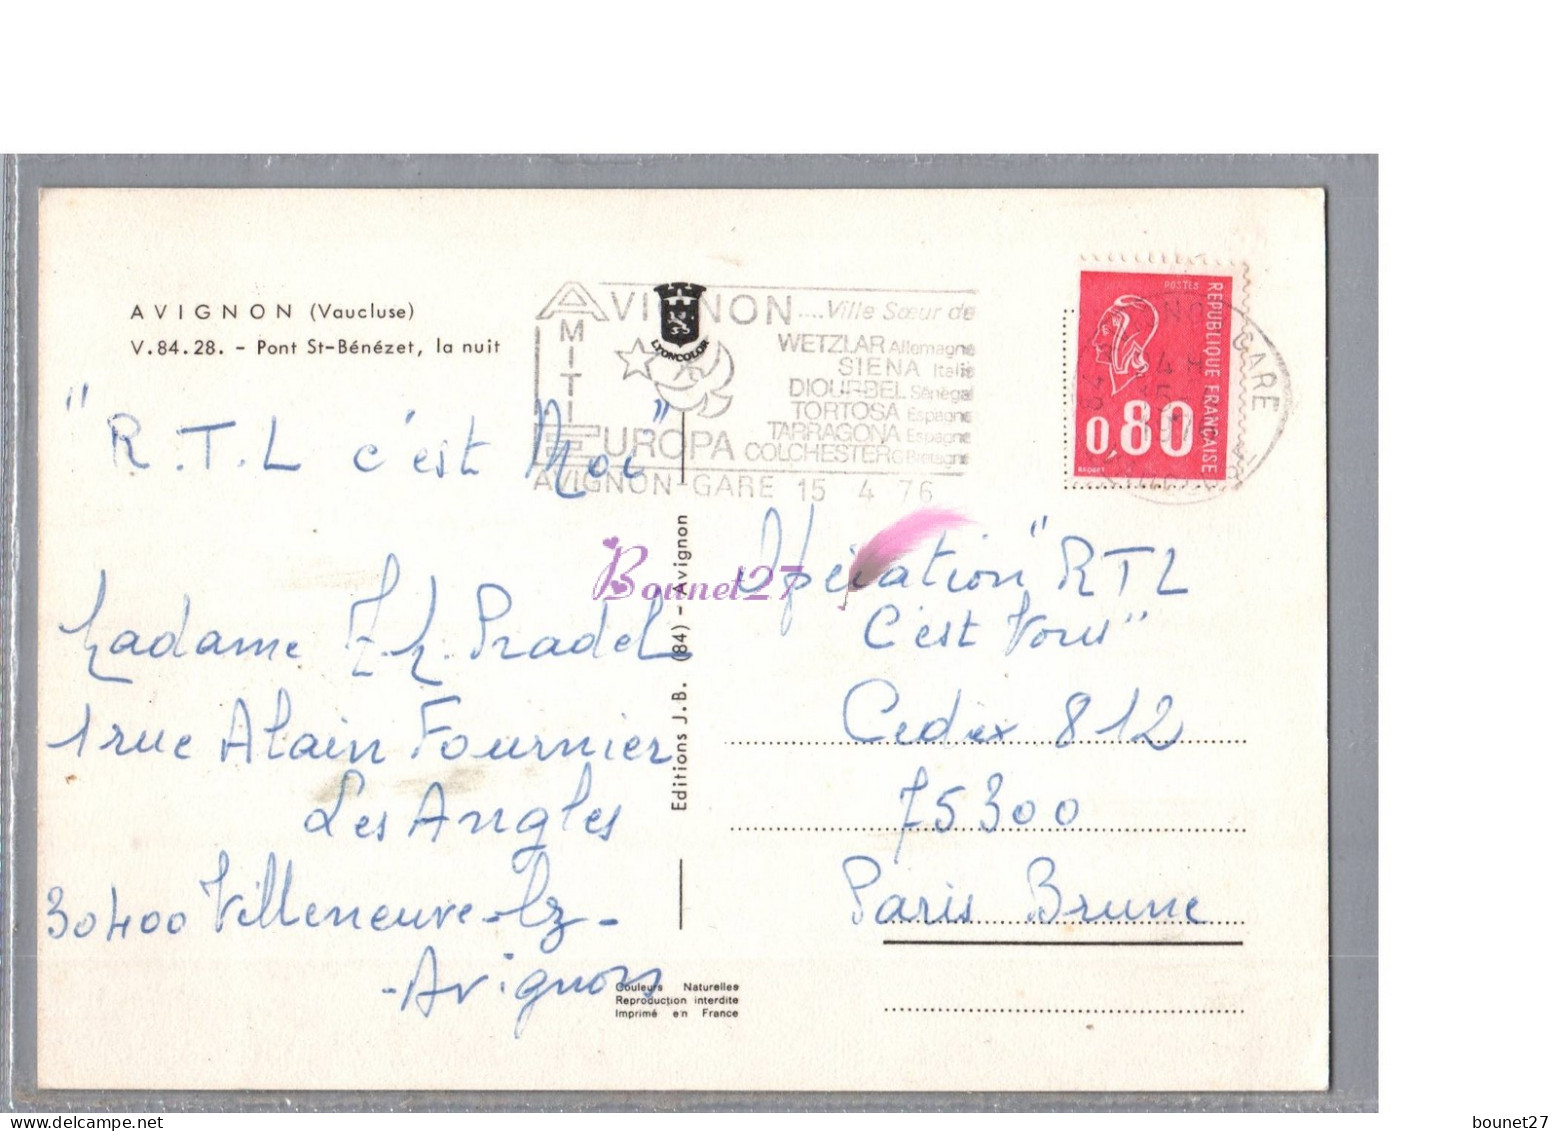 AVIGNON (Vaucluse)
V.84.28. - Pont St-Bénézet, la nuit
AVIGNON....Ville Sœur de
AMITIE
WETZLAR Allemagne
SIENA Italie
DIOURBEL Sénégal
TORTOSA Espagne
TARRAGONA Espagne
EUROPA COLCHESTER GBretagne
AVIGNON-GARE 15 4 76
LYONCOLOR
POSTES
REPUBLIQUE FRANÇAISE
0,80
BEQUET
GARE
"R.T.L c'est Moi"
Madame M. Pradel
1 rue Alain Fournier
Les Angles
30400 Villeneuve-lz-
-Avignon
Editions J.B. (84) - Avignon
Bounet27
Opération "RTL
C'est Vous"
Cedex 812
75300
Paris Brune
Couleurs Naturelles
Reproduction interdite
Imprimé en France
bounet27